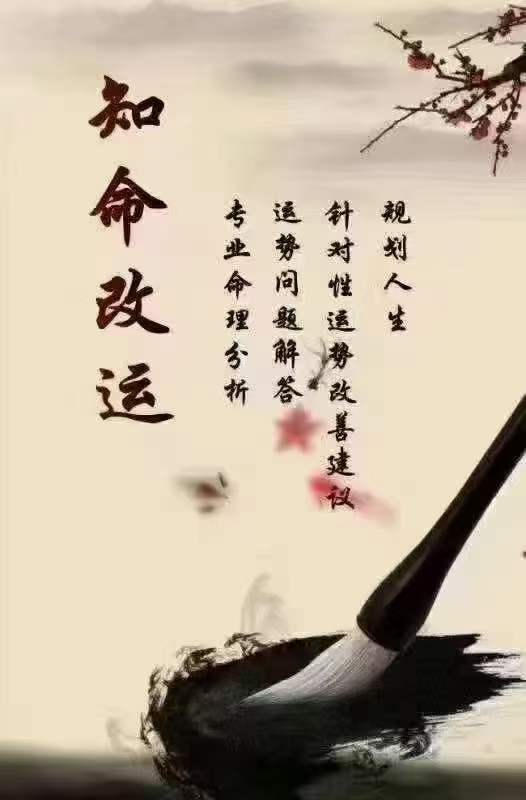 知命改运
专业命理分析
运势问题解答
针对性运势改善建议
规划人生